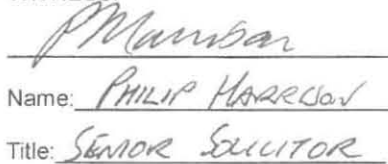 Name: PHILIP HARRISON
Title: SENIOR SOLICITOR